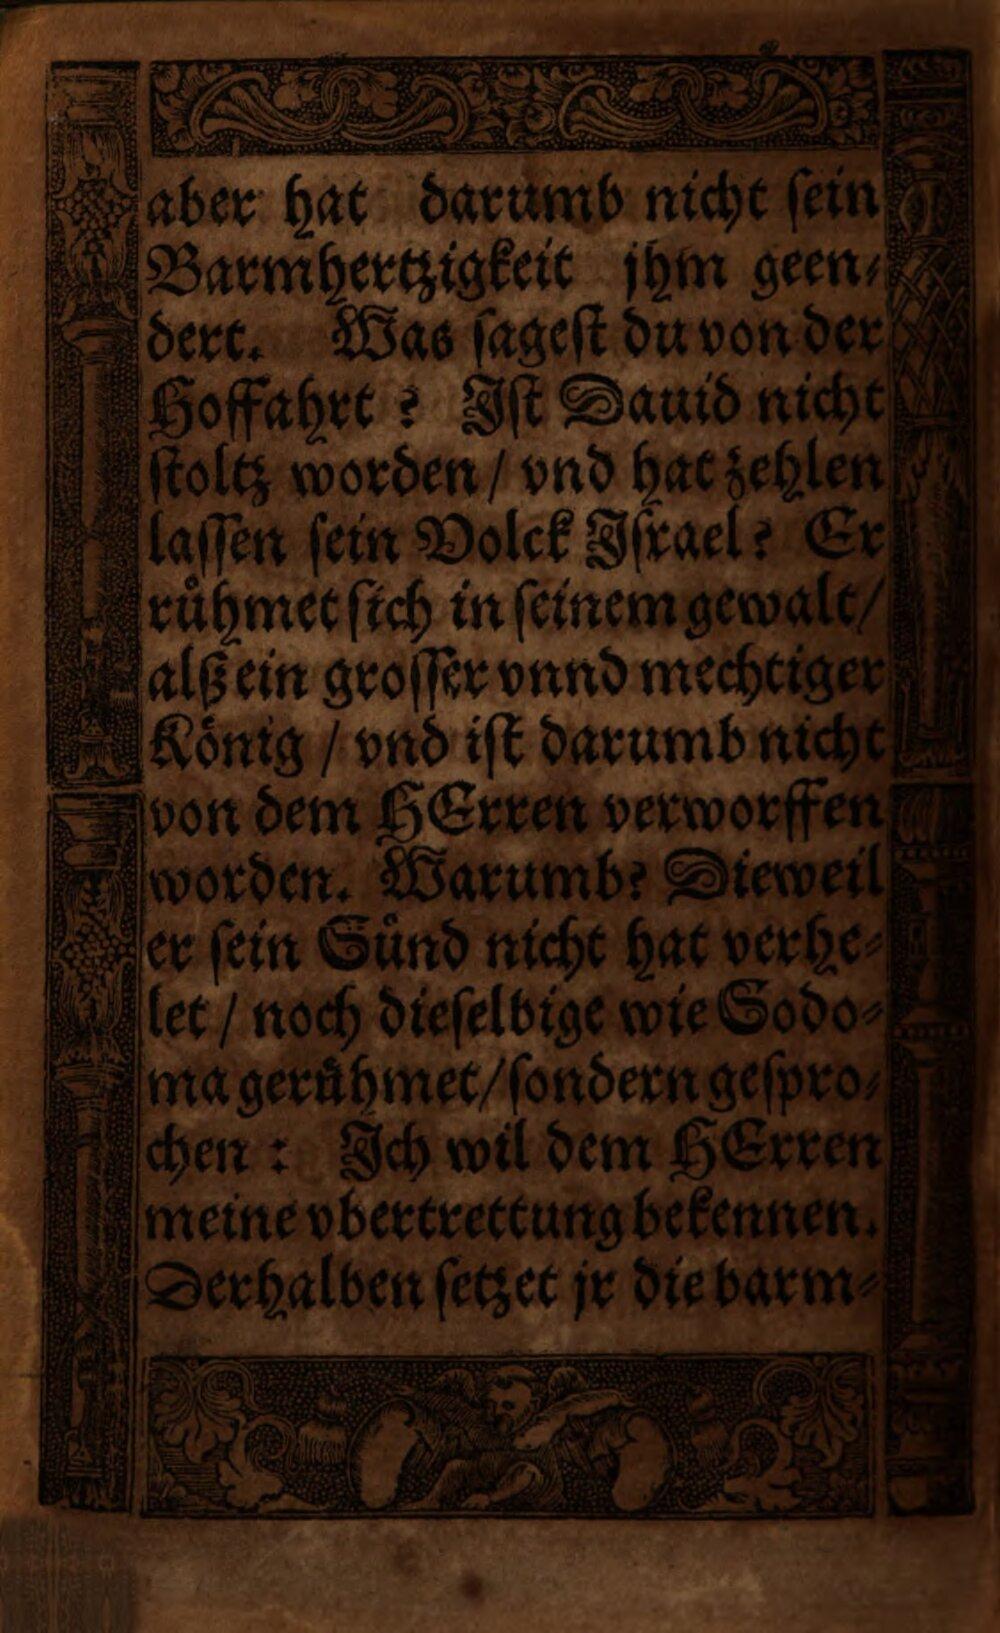 aber hat darumb nicht ſein
Barmhertzigkeit jhm geen⸗
dert. Was ſageſt du von der
Hoffahrt? Iſt Dauid nicht
ſtoltz worden / vnd hat zehlen
laſſen ſein Volck Iſrael? Er
ruͤhmet ſich in ſeinem gewalt /
alß ein groſſer vnnd mechtiger
Koͤnig / vnd iſt darumb nicht
von dem HErren verworffen
worden. Warumb? Dieweil
er ſein Suͤnd nicht hat verhe⸗
let / noch dieſelbige wie Sodo⸗
ma geruͤhmet / ſondern geſpro⸗
chen : Ich wil dem HErren
meine vbertrettung bekennen.
Derhalben ſetzet jr die barm⸗